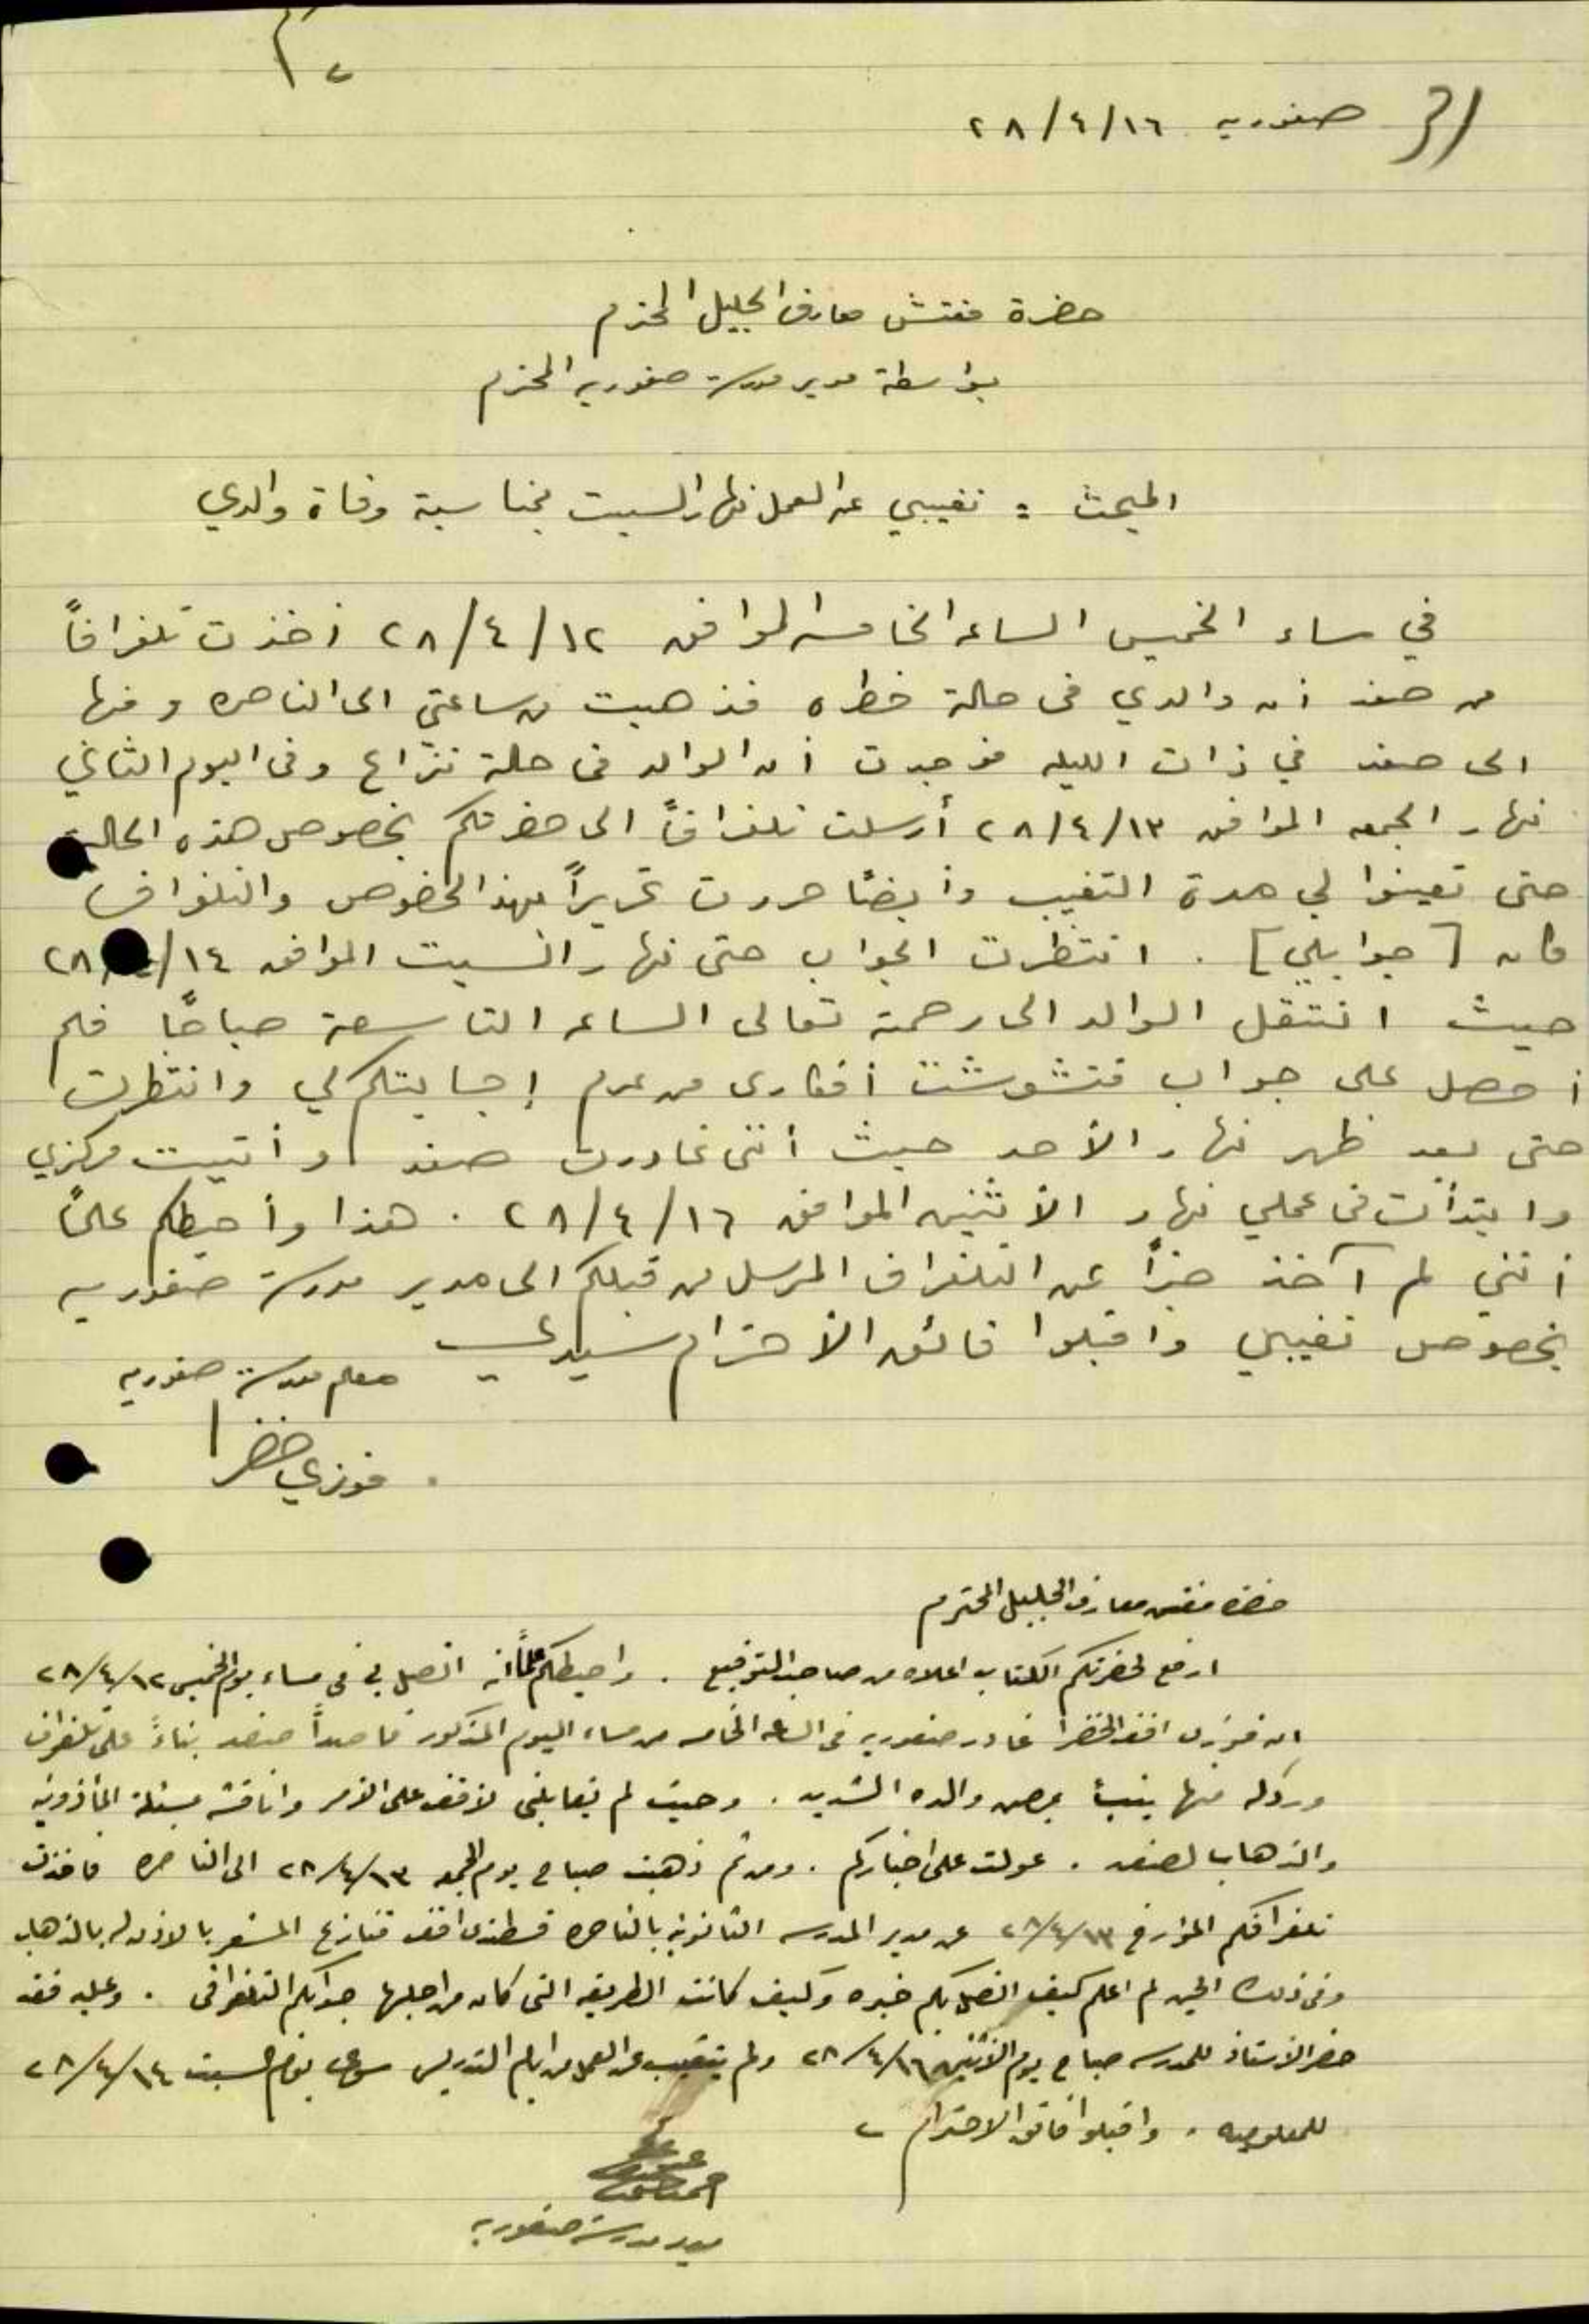 صفوريه ١٦/٤/٢٨
حضرة مفتش معارف الجليل المحترم
بواسطة مدير مدرسة صفوريه المحترم
المبحث = تغيبي عن العمل نهار السبت بمناسبة وفاة والدي
في مساء الخميس الساعه الخامسه الموافق ١٢/٤/٢٨ أخذت تلغرافاً
من صفد أن والدي في حالة خطره فذهبت من ساعتي الى الناصره ومنها
الى صفد في ذات الليله فوجدت أن الوالد في حالة نزاع وفي اليوم الثاني
نهار الجمعه الموافق ١٣/٤/٢٨ أرسلت تلغرافاً الى حضرتكم بخصوص هذه الحالة
حتى تعينوا لي مدة التغيب وأيضاً حررت تحريراً بهذا الخصوص والتلغراف
كان [جوابلي] . انتظرت الجواب حتى نهار السبت الموافق ١٤/٤/٢٨
حيث انتقل الوالد الى رحمة تعالى الساعه التاسعة صباحاً فلم
أحصل على جواب فتشوشت أفكاري من عدم إجابتكم لي وانتظرت
حتى بعد ظهر نهار الأحد حيث أنني غادرت صفد وأتيت مركزي
وابتدأت في عملي نهار الأثنين الموافق ١٦/٤/٢٨ . هذا وأحيطكم علماً
أنني لم آخذ خبراً عن التلغراف المرسل من قبلكم الى مدير مدرسة صفوريه
بخصوص تغيبي واقبلوا فائق الأحترام سيدي
معلم مدرسة صفوريه
فوزي خضرا
حضرة مفتش معارف الجليل المحترم
ارفع لحضرتكم الكتاب اعلاه من صاحب التوقيع . واحيطكم علماً انه اتصل بي في مساء يوم الخميس ١٢/٤/٢٨
ان فوزي افندي الخضرا غادر صفوريه في الساعه الخامسه من مساء اليوم المذكور قاصداً صفد بناءً على تلغراف
ورد له منها ينبئ بمرض والده الشديد . وحيث لم يقابلني لاقف على الامر واناقشه مسئلة المأذونيه
والذهاب لصفد . عولت على اخباركم . ومن ثم ذهبت صباح يوم الجمعه ١٣/٤/٢٨ الى الناصره فاخذت
تلغرافكم المؤرخ ١٣/٤/٢٨ من مدير المدرسه الثانويه بالناصره قسطندي افندي قنازع المشعر بالاذن له بالذهاب
وفي ذلك الحين لم اعلم كيف اتصل بكم خبره وكيف كانت الطريقه التي كان من اجلها جوابكم التلغرافي . وعليه فقد
حضر الاستاذ للمدرسه صباح يوم الاثنين ١٦/٤/٢٨ ولم يتغيب عن العمل من ايام التدريس سوى يوم السبت ١٤/٤/٢٨
للمعلوميه . واقبلوا فائق الاحترام
مدير مدرسة صفوريه